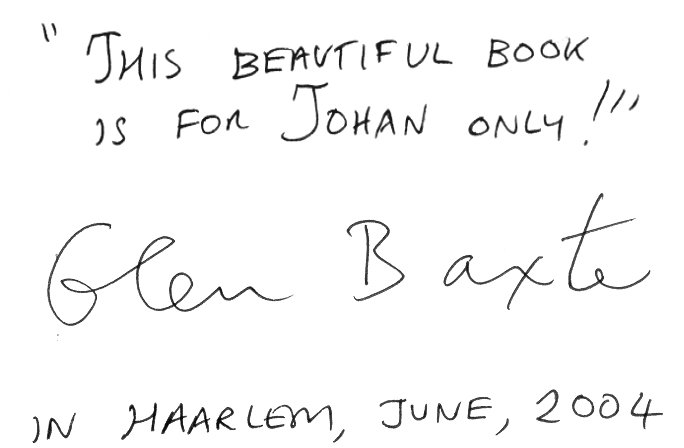 "THIS BEAUTIFUL BOOK
IS FOR JOHAN ONLY!"
Glen Baxter
IN HAARLEM, JUNE, 2004